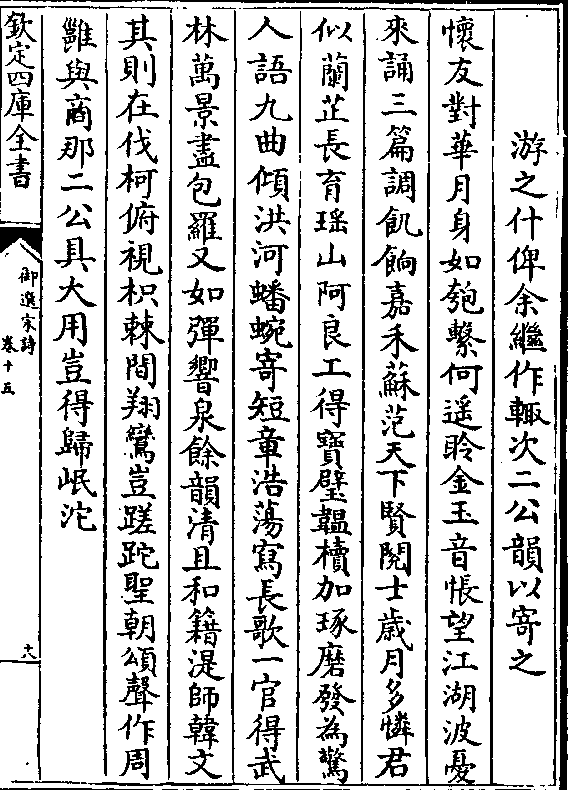 游之什俾余繼作輙次二公韻以寄之
懷友對華月身如匏繫何遥聆金玉音悵望江湖波憂
來誦三篇調飢餉嘉禾蘇范天下賢閱士歳月多憐君
似蘭芷長育瑶山阿良工得寶璧韞櫝加琢磨發為驚
人語九曲傾洪河蟠蜿寄短章浩蕩寫長歌一官得武
林萬景盡包羅又如彈響泉餘韻清且和籍湜師韓文
其則在伐柯俯視枳棘間翔鸞豈蹉跎聖朝頌聲作周
雖與商那二公具大用豈得歸岷沱
欽定四庫全書
御選宋詩
卷十五
十八